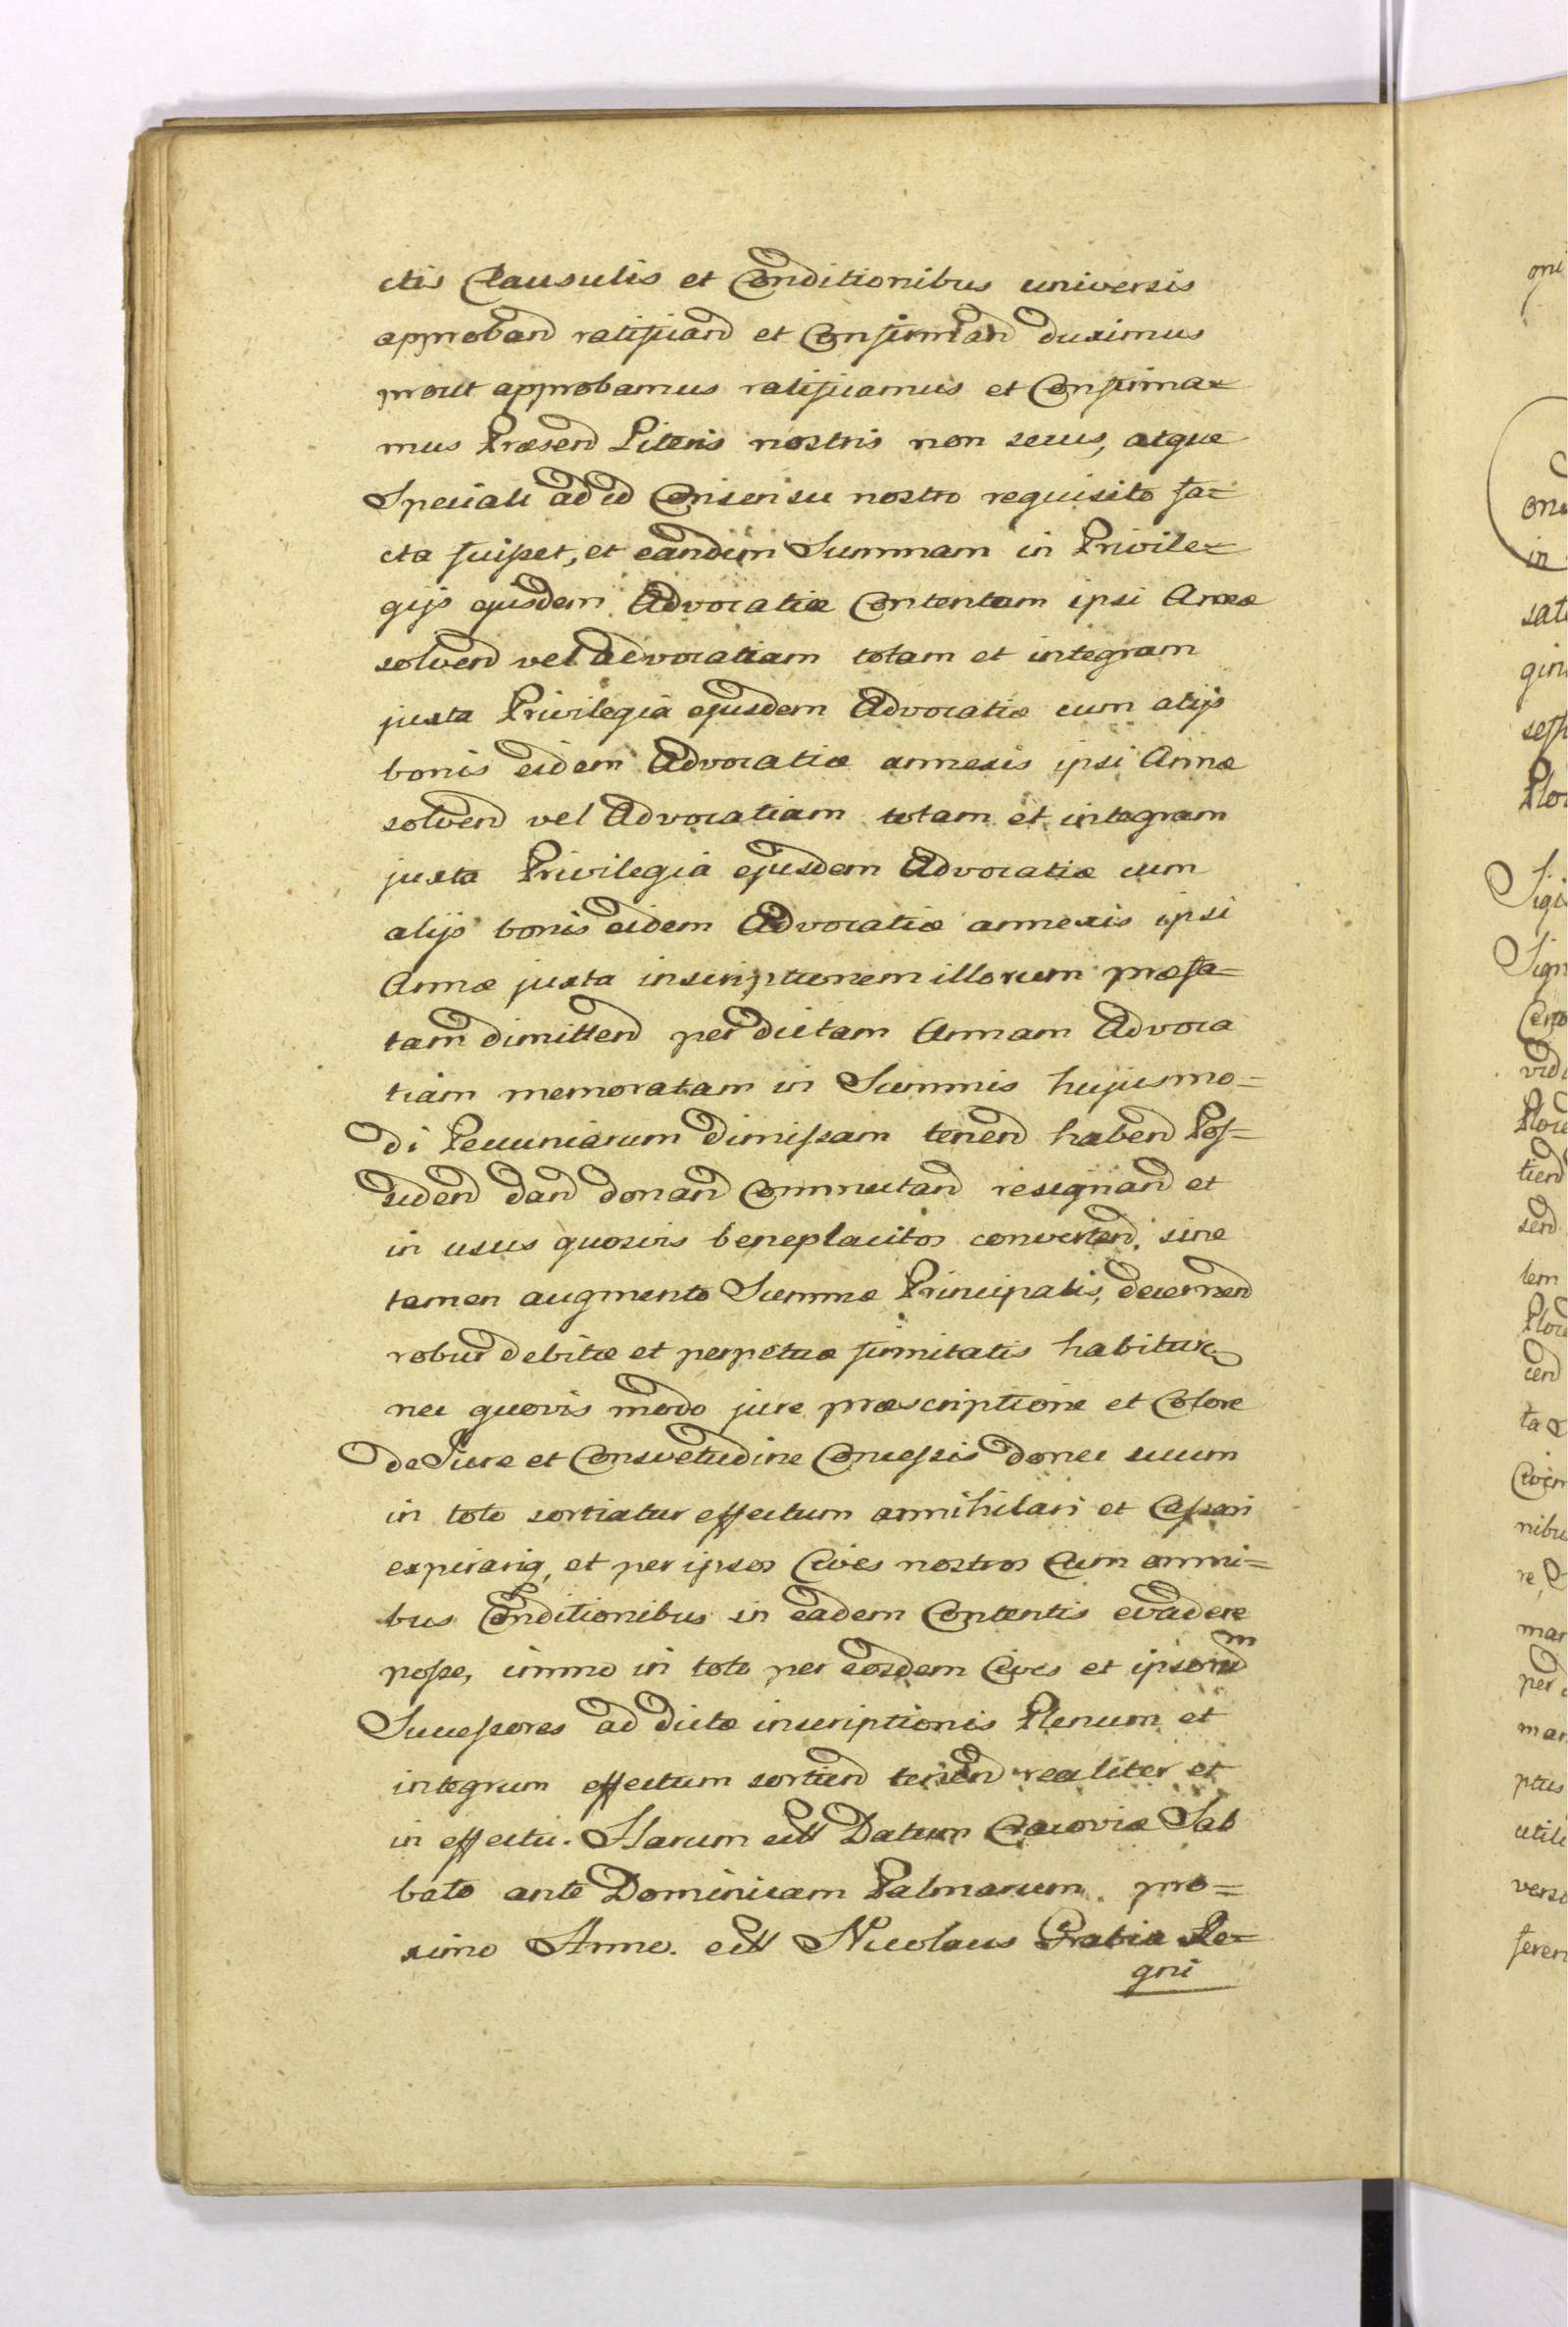 ctis Clausulis et Conditionibus universis
approband ratificand et Confirmand duximus
prout approbamus ratificamus et Confirma=
mus Præsend Literis nostris non secus, atque
Speciali ad id Consensu nostro requisito fa=
cta fuisset, et eandem Summam in Privile=
gijs ejusdem Advocatiæ Contentam ipsi Annæ
solvend vel advocatiam totam et integram
juxta Privilegia ejusdem Advocatiæ cum alijs
bonis eidem Advocatiæ annexis ipsi Annæ
solvend vel Advocatiam totam et integram
juxta Privilegia ejusdem Advocatiæ cum
alijs bonis eidem Advocatiæ annexis ipsi
Annæ juxta inscriptionem illorum præfa=
tam dimittend per dictam Annam Advoca
tiam memoratam in Summis hujusmo=
di Pecuniarum dimissam tenend habend Pos=
sidend dand donand Commutand resignand et
in usus quosvis beneplacitos convertend, sine
tamen augmento Summæ Principalis, decernend
robur debitæ et perpetuæ firmitatis habitur
nec quovis modo jure præscriptione et Colore
de Jure et Consvetudine Concessis donec suum
in toto sortiatur effectum annihilari et Cassari
expirariq, et per ipsos Cives nostros Cum omni=
bus Conditionibus in eadem Contentis evadere
posse, immo in toto per eosdem Cives et ipsorum
Successores ad dictæ inscriptionis Plenum et
integrum effectum sortiend tenend realiter et
in effectu. Harum ett Datum Cracoviæ Sab
bato ante Dominicam Palmarum. pro=
ximo Anno. ett Nicolaus Gratia Re=
gni